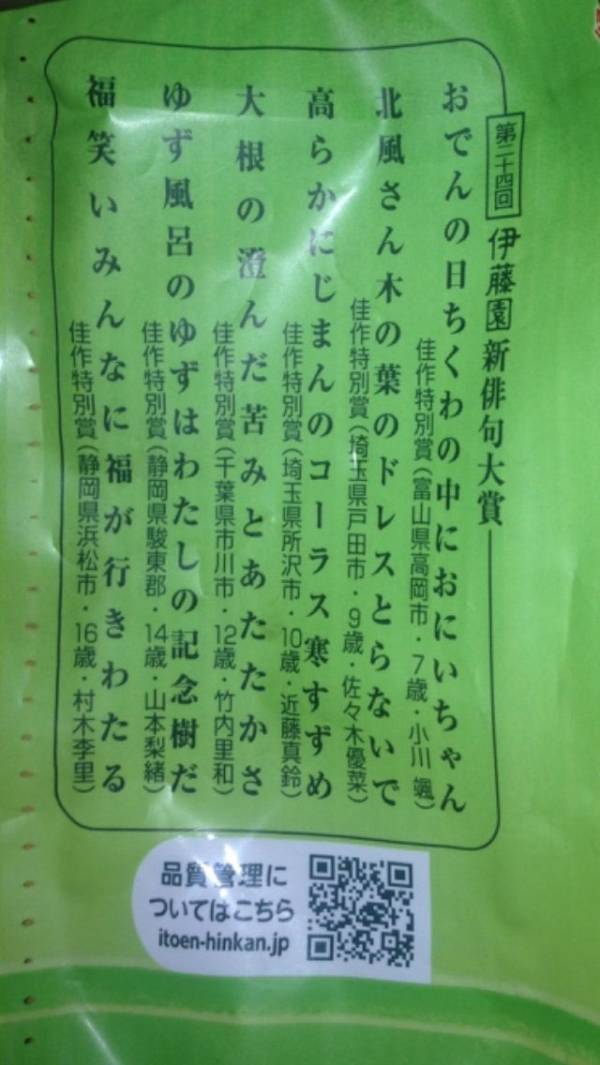 第二十四回 伊藤園新俳句大賞
おでんの日ちくわの中におにいちゃん
佳作特別賞(富山県高岡市・7歳・小川 颯)
北風さん木の葉のドレスとらないで
佳作特別賞(埼玉県戸田市・9歳・佐々木優菜)
高らかにじまんのコーラス寒すずめ
佳作特別賞(埼玉県所沢市・10歳・近藤真鈴)
大根の澄んだ苦みとあたたかさ
佳作特別賞(千葉県市川市・12歳・竹内里和)
ゆず風呂のゆずはわたしの記念樹だ
佳作特別賞(静岡県駿東郡・14歳・山本梨緒)
福笑いみんなに福が行きわたる
佳作特別賞(静岡県浜松市・16歳・村木李里)
品質管理に
ついてはこちら
itoen-hinkan.jp